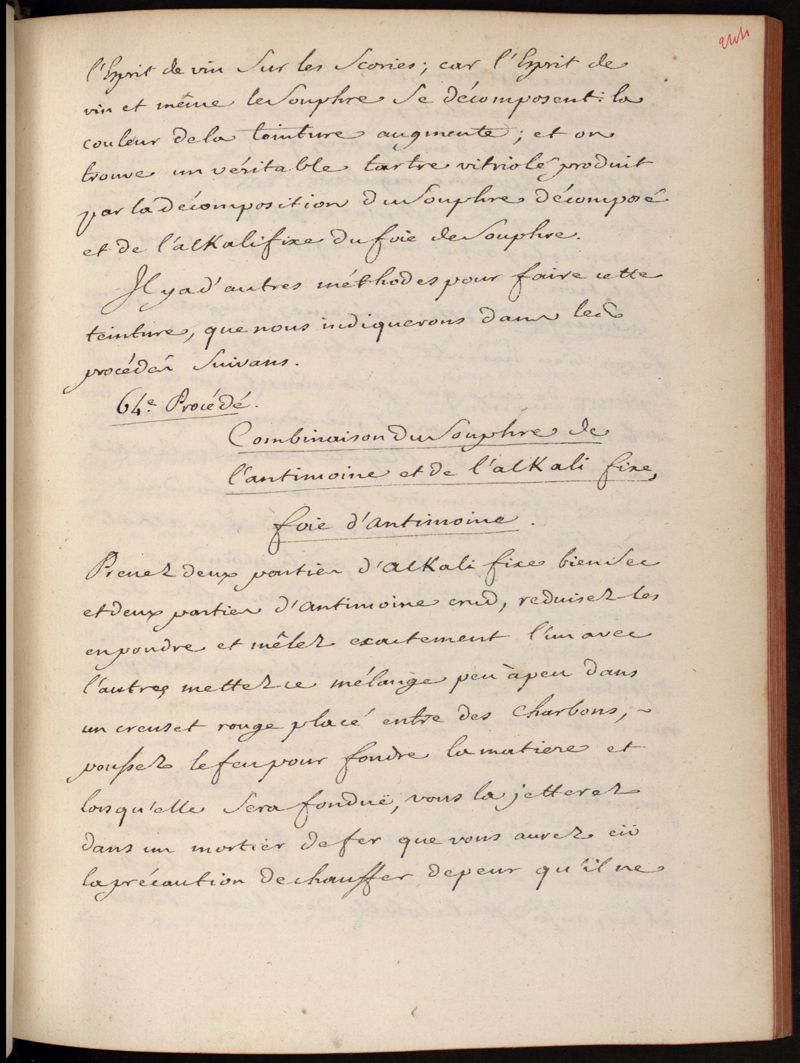 244
l'Esprit de vin Sur les Scories; car l'Esprit de
vin et même le Souphre Se décomposent: la
couleur de la teinture augmente; et on
trouve un véritable tartre vitriolé produit
par la décomposition du Souphre décomposé
et de l'alkali fixe du foie de Souphre.
Il y a d'autres méthodes pour faire cette
teinture, que nous indiquerons dans les
procédés Suivans.
64.e Procédé.
Combinaison du Souphre de
l'antimoine et de l'alkali fixe,
foie d'Antimoine.
Prenez deux parties d'alkali fixe bien Sec
et deux parties d'antimoine crud, reduisez les
en poudre et mêlez exactement l'un avec
l'autre, mettez ce mélange peu à peu dans
un creuset rouge placé entre des Charbons, ~
poussez le feu pour fondre la matiere et
lorsqu'elle Sera fonduë, vous la jetterez
dans un mortier de fer que vous aurez eü
la précaution de chauffer de peur qu'il ne